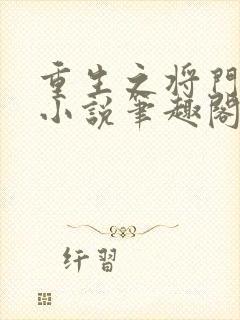 重生之将門
小説筆趣閣
纤習